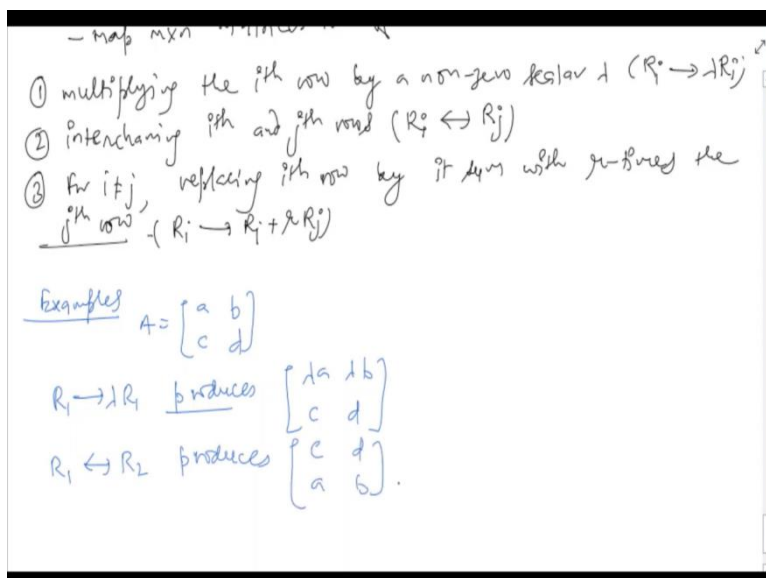 - map mxn
① multiplying the ith row by a non-zero scalar λ (Ri → λRi)
② interchaning ith and jth rows (Ri ↔ Rj)
③ For i≠j, replacing ith row by it sum with r-times the
jth row (Ri → Ri + r Rj)
Examples A = [a b
c d]
R1 → λR1 produces [λa λb
c d]
R1 ↔ R2 produces [c d
a b].